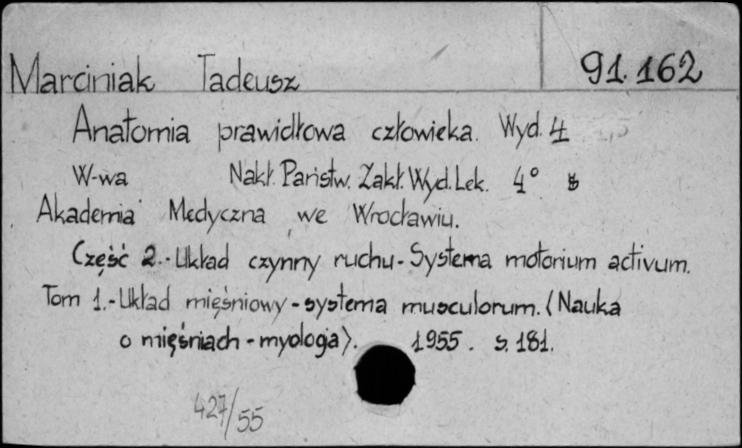 Marciniak Tadeusz 91.162
Anatomia prawidłowa człowieka. Wyd. 4
W-wa Nakł. Państw. Zakł. Wyd. Lek. 4°
Akademia Medyczna we Wrocławiu.
Część 2.- Układ czynny ruchu - Systema motorium activum.
Tom 1.- Układ mięśniowy - systema musculorum. (Nauka
o mięśniach - myologia). 1955. s. 181.
427/55